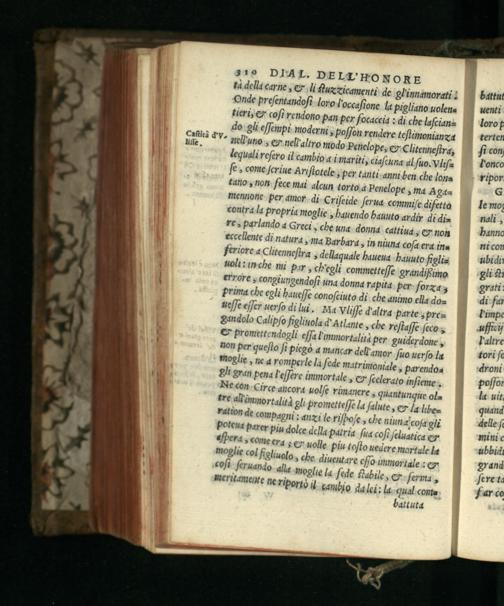 310 DIAL. DELL'HONORE
tà della carne, & li stuzzicamenti de gl'innamorati.
Onde presentandosi loro l'occasione la pigliano uolen=
tieri, & cosi rendono pan per focaccia: di che lascian=
do gli essempi moderni, posson rendere testimonianza
Castità d'V-
lisse.
nell'uno, & nell'altro modo Penelope, & Clitennestra,
lequali resero il cambio a i mariti, ciascuna al suo. Vlis=
se, come scriue Aristotele, per tanti anni ben che lon=
tano, non fece mai alcun torto a Penelope, ma Aga=
mennone per amor di Criseide serua commise difetto
contra la propria moglie, hauendo hauuto ardir di di=
re, parlando a Greci, che una donna cattiua, & non
eccellente di natura, ma Barbara, in niuna cosa era in=
feriore a Clitennestra, dellaquale haueua hauuto figli=
uoli: in che mi par, ch'egli commettesse grandißimo
errore, congiungendosi una donna rapita per forza,
prima che egli hauesse conosciuto di che animo ella do=
uesse esser uerso di lui. Ma Vlisse d'altra parte, pre=
gandolo Calipso figliuola d'Atlante, che restasse seco,
& promettendogli essa l'immortalità per guiderdone,
non per questo si piegò a mancar dell'amor suo uerso la
moglie, ne a romperle la fede matrimoniale, parendo=
gli gran pena l'essere immortale, & scelerato insieme.
Ne con Circe ancora uolse rimanere, quantunque ol=
tre all'immortalità gli promettesse la salute, & la libe=
ration de compagni: anzi le rispose, che niuna cosa gli
poteua parer piu dolce della patria sua cosi seluatica &
aspera, come era; & uolle piu tosto uedere mortale la
moglie col figliuolo, che diuentare esso immortale: &
cosi seruando alla moglie la fede stabile, & ferma,
meritamente ne riportò il cambio da lei: la qual com=
battuta